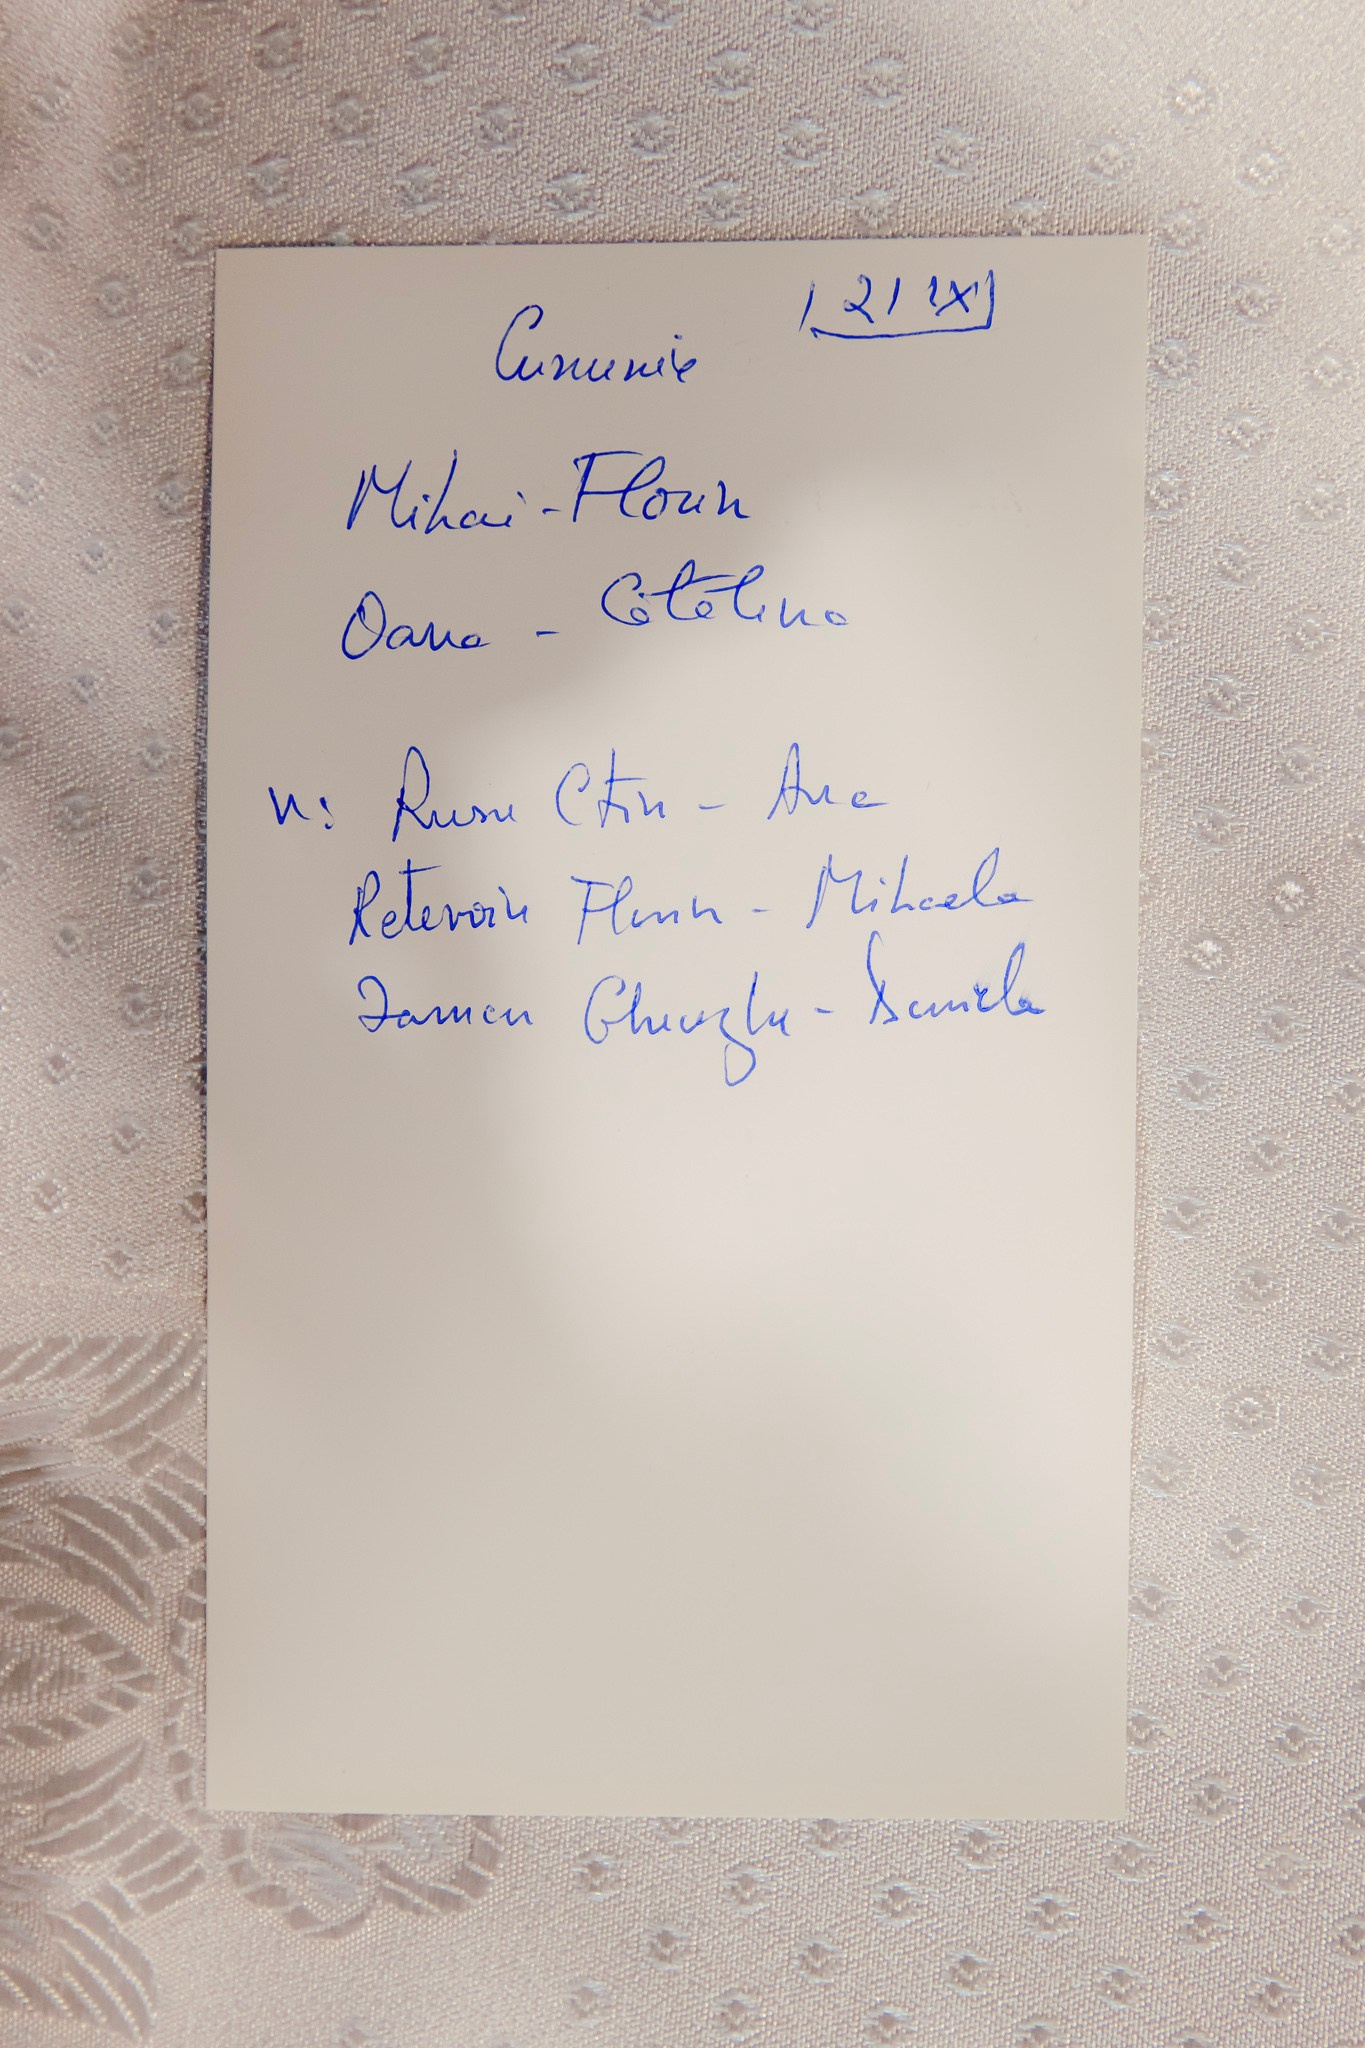 21 IX
Cununie
Mihai - Florin
Oana - Cătălina
n: Rusu Ctin - Ana
Retevoiu Florin - Mihaela
Gheorghe - Daniela